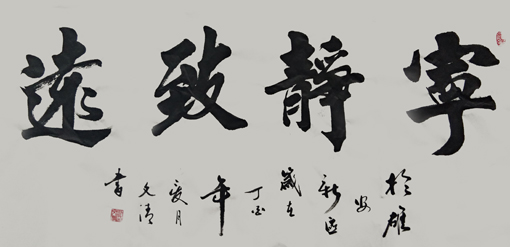 寧靜致遠
於雄安新區歲在丁酉年夏月文清書